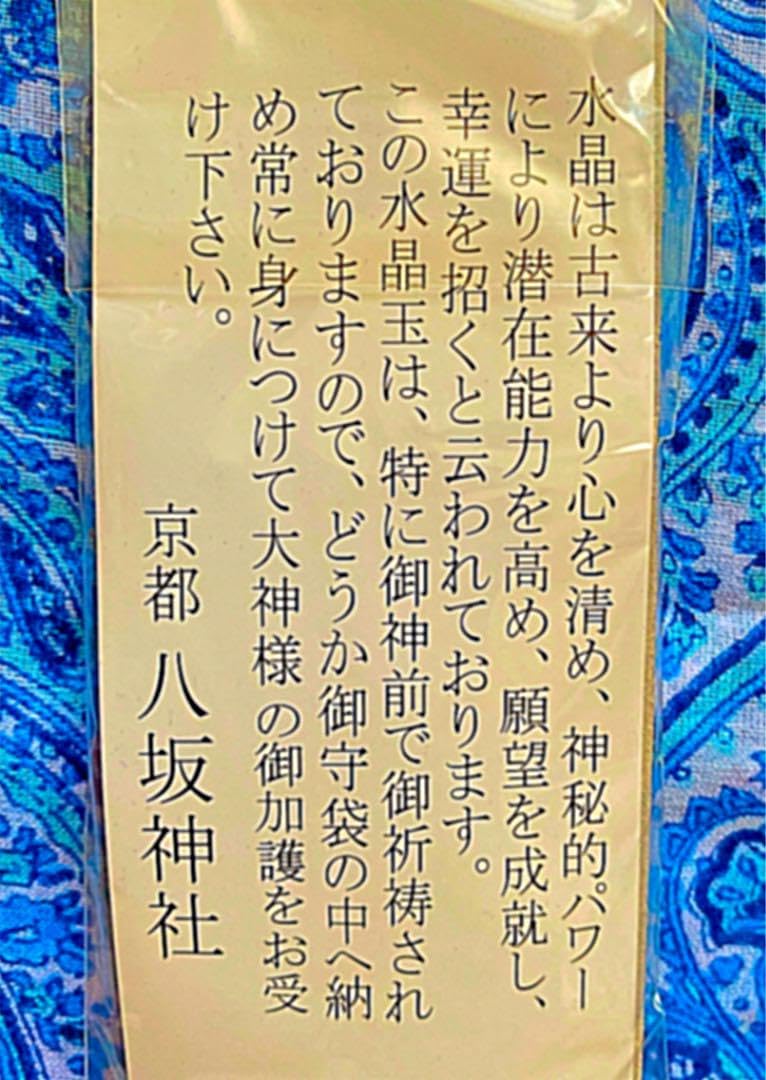 水晶は古来より心を清め、神秘的パワー
により潜在能力を高め、願望を成就し、
幸運を招くと云われております。
この水晶玉は、特に御神前で御祈祷され
ておりますので、どうか御守袋の中へ納
め常に身につけて大神様の御加護をお受
け下さい。
京都 八坂神社